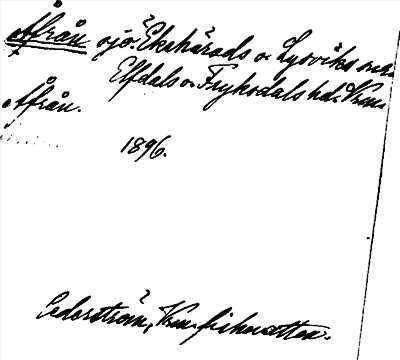 Åfrån sjö. Ekshärads o. Lysviks snr
Elfdals o. Fryksdals hd. Vrm.
Åfrån.
1896.
Cederström, Vrm. fiskevatten.